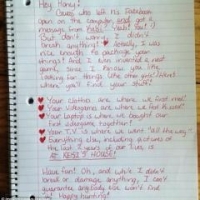 Hey Honey!
Guess who left his Facebook
open on the computer and got a
message from
But don't worry, I didn't
break anything! Actually, I was
nice enough to package your
things! And I even invented a neat
game, since I know you like
other girls!
you'll find your stuff!
Your clothes are where we first met
Your videogames are where we first kissed
Your laptop is where we bought our
first together!
Your T.V is where we went "all the way."
Everything else including pictures of
the last 2 years of our lives is
AT HOUSE!
Have fun! Oh, and while I didn't
break or damage anything, I can't
guarantee anybody else won't find
Happy hunting!